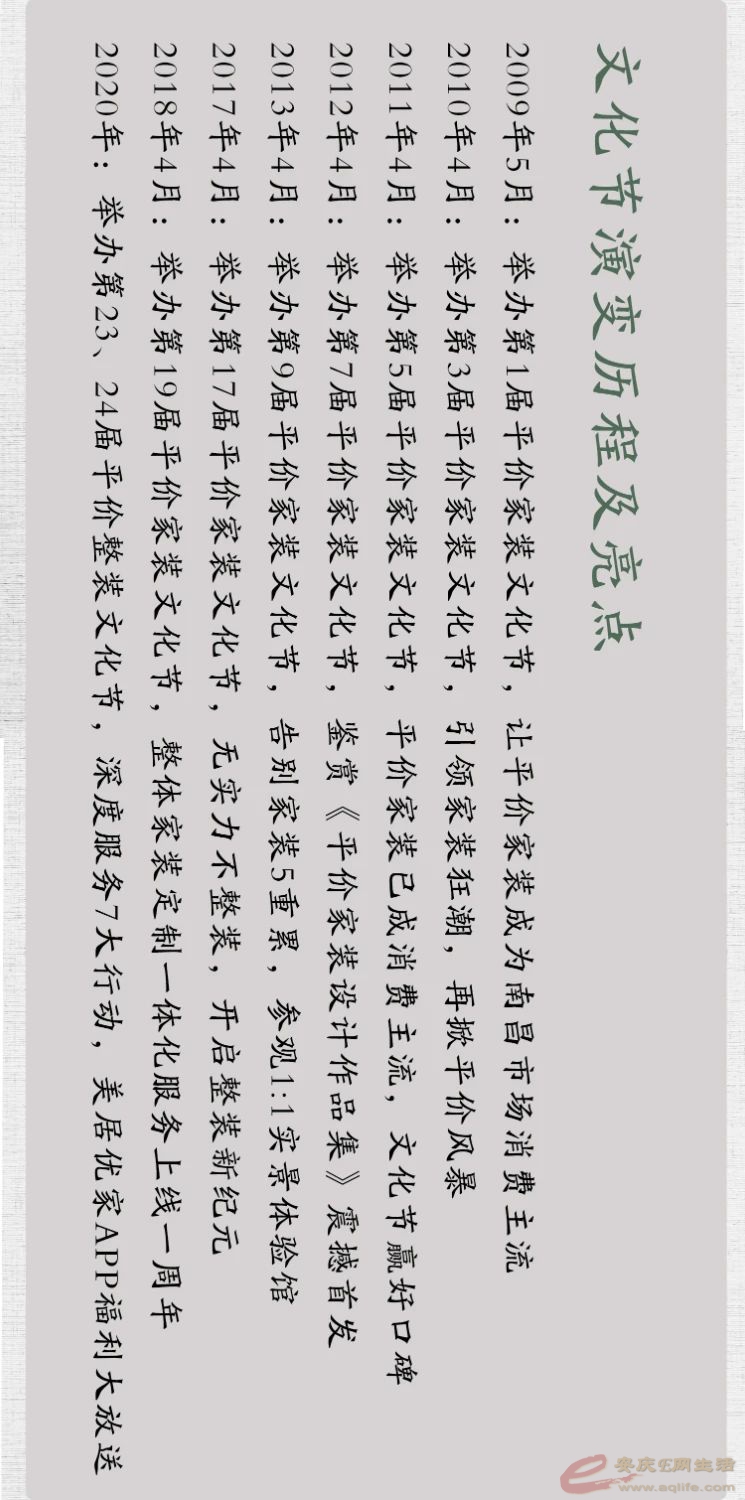 文化节演变历程及亮点
2009年5月：举办第1届平价家装文化节，让平价家装成为南昌市场消费主流
2010年4月：举办第3届平价家装文化节，引领家装狂潮，再掀平价风暴
2011年4月：举办第5届平价家装文化节，平价家装已成消费主流，文化节赢好口碑
2012年4月：举办第7届平价家装文化节，鉴赏《平价家装设计作品集》震撼首发
2013年4月：举办第9届平价家装文化节，告别家装5重累，参观1:1实景体验馆
2017年4月：举办第17届平价家装文化节，无实力不整装，开启整装新纪元
2018年4月：举办第19届平价家装文化节，整体家装定制一体化服务上线一周年
2020年：举办第23、24届平价整装文化节，深度服务7大行动，美居优家APP福利大放送
安庆E网生活
www.aqlife.com